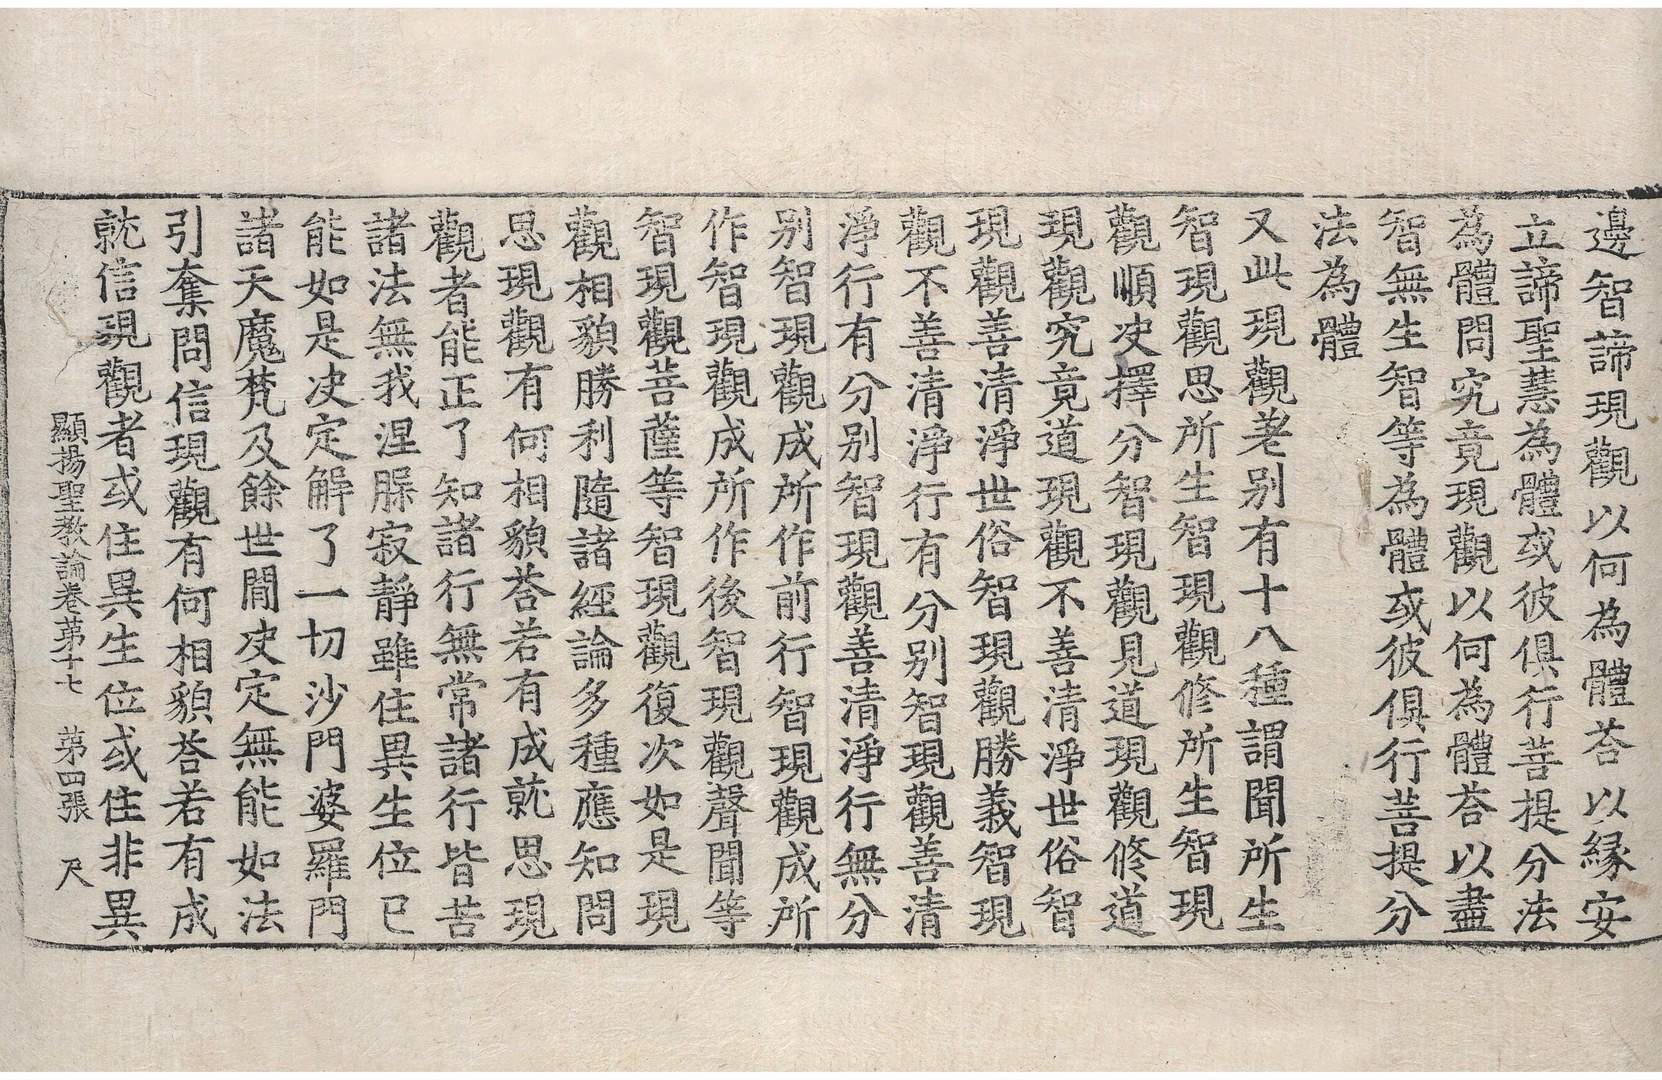 邊智諦現觀以何為體荅以緣安
立諦聖慧為體或彼俱行菩提分法
為體問究竟現觀以何為體荅以盡
智無生智等為體或彼俱行菩提分
法為體
又此現觀差别有十八種謂聞所生
智現觀思所生智現觀修所生智現
觀順决擇分智現觀見道現觀修道
現觀究竟道現觀不善清淨世俗智
現觀善清淨世俗智現觀勝義智現
觀不善清淨行有分别智現觀善清
淨行有分别智現觀善清淨行無分
别智現觀成所作前行智現觀成所
作智現觀成所作後智現觀聲聞等
智現觀菩薩等智現觀復次如是現
觀相貌勝利隨諸經論多種應知問
思現觀有何相貌荅若有成就思現
觀者能正了知諸行無常諸行皆苦
諸法無我涅槃寂靜雖住異生位已
能如是决定解了一切沙門婆羅門
諸天魔梵及餘世間决定無能如法
引奪問信現觀有何相貌荅若有成
就信現觀者或住異生位或住非異
顯揚聖教論卷苐十七 苐四張 尺